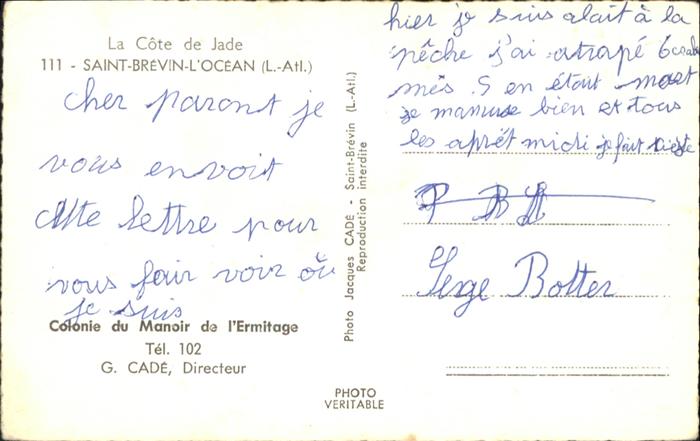 La Côte de Jade
111 - SAINT-BRÉVIN-L'OCÉAN (L.-Atl.)
cher paront je
vous envoit
cette lettre pour
vous fair voir où
je suis
Colonie du Manoir de l'Ermitage
Tél. 102
G. CADÉ, Directeur
Photo Jacques CADÉ - Saint-Brévin (L.-Atl.)
Reproduction interdite
PHOTO
VERITABLE
hier je suis alait à la
pêche j'ai atrapé 6 crabe
més 5 en étout mort
je mamuse bien et tous
les aprét midi je fait sieste
Serge Botter